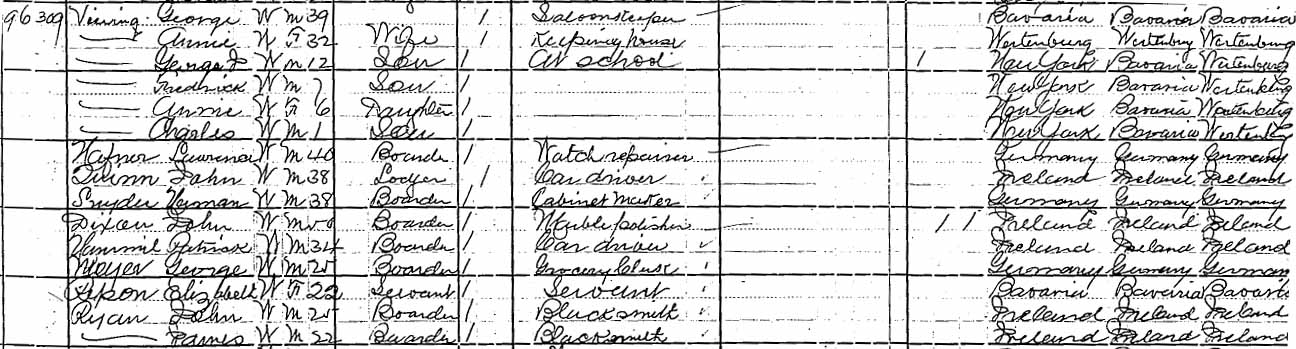 96 309 Viening George W M 39 1 Saloonkeeper Bavaria Bavaria Bavaria
Annie W F 32 Wife 1 Keeping house Wertenburg Wertenburg Wertenburg
George J W M 12 Son 1 At school 1 New York Bavaria Wertenburg
Fredrick W M 7 Son 1 New York Bavaria Wertenburg
Annie W F 6 Daughter 1 New York Bavaria Wertenburg
Charles W M 1 Son 1 New York Bavaria Wertenburg
Hafner Lawrence W M 40 Boarder 1 Watch repairer Germany Germany Germany
Quinn John W M 38 Lodger 1 Car driver Ireland Ireland Ireland
Snyder Herman W M 38 Boarder 1 Cabinet Maker Germany Germany Germany
Dixon John W M 50 Boarder 1 Marble polisher 1 1 Ireland Ireland Ireland
Hammil Patrick W M 34 Boarder 1 Car driver Ireland Ireland Ireland
Meyer George W M 25 Boarder 1 Grocery Clerk Germany Germany Germany
Elizabeth W F 22 Servant 1 Servant Bavaria Bavaria Bavaria
Ryan John W M 25 Boarder 1 Blacksmith Ireland Ireland Ireland
James W M 22 Boarder 1 Blacksmith Ireland Ireland Ireland